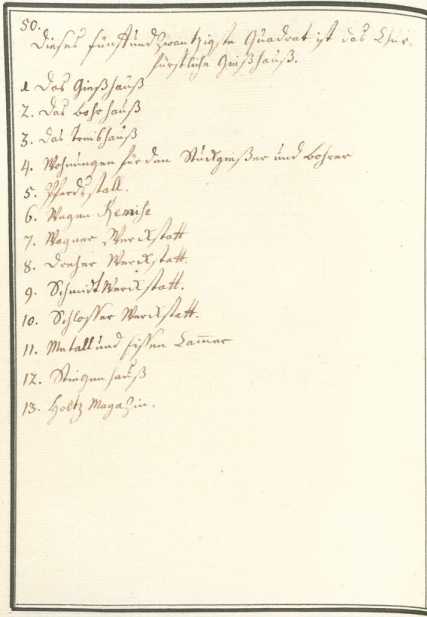 50.
Dieses fünffundzwantzigste Quadrat ist das Chur-
fürstliche Gießhauß.
1 Das Gießhauß
2. das bohrhauß
3. das treibhauß
4. Wohnungen für den Stückgießer und bohrer
5. Pferdsstall.
6. Wagen Remise
7. Wagner Werckstatt
8. dreher Werckstatt.
9. Schmidt Werckstatt.
10. Schlosser Werckstatt.
11. Metall und Eissen Cammer
12. Stiegenhauß
13. Holtz Magazin.